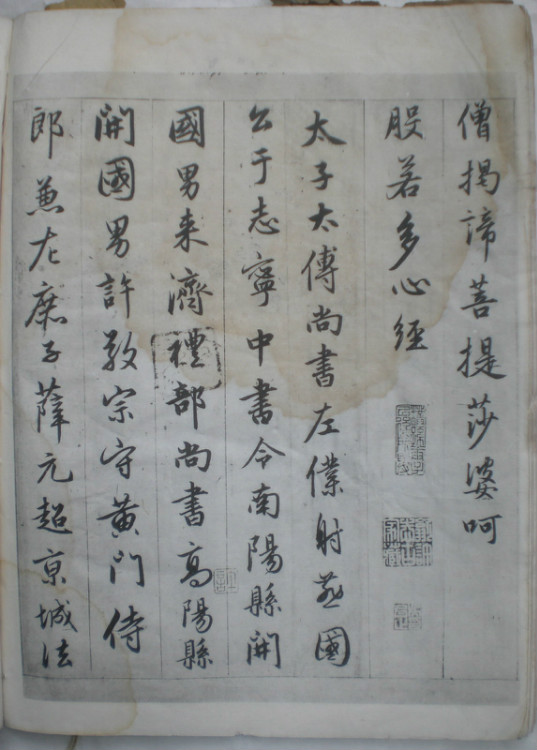 僧揭諦菩提莎婆呵
般若多心經
太子太傅尚書左僕射燕國
公于志寧中書令南陽縣開
國男来濟禮部尚書高陽縣
開國男許敬宗守黃門侍
郎兼左庶子薛元超京城法